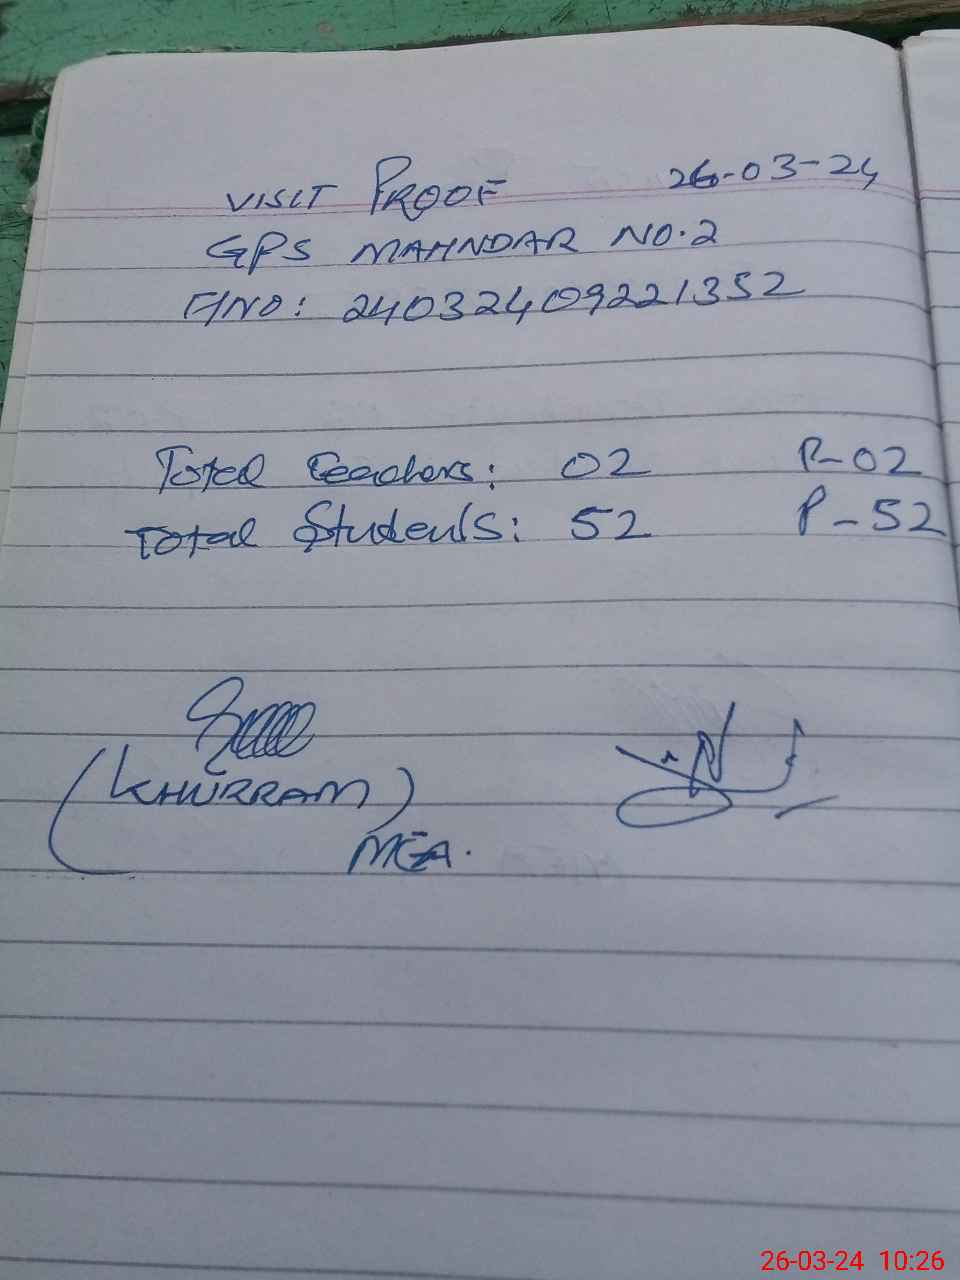 VISIT PROOF 26-03-24
GPS MAHNDAR NO.2
F/NO: 24032409221352
Total Teachers: 02 P-02
Total Students: 52 P-52
(KHURRAM)
MEA.
26-03-24 10:26